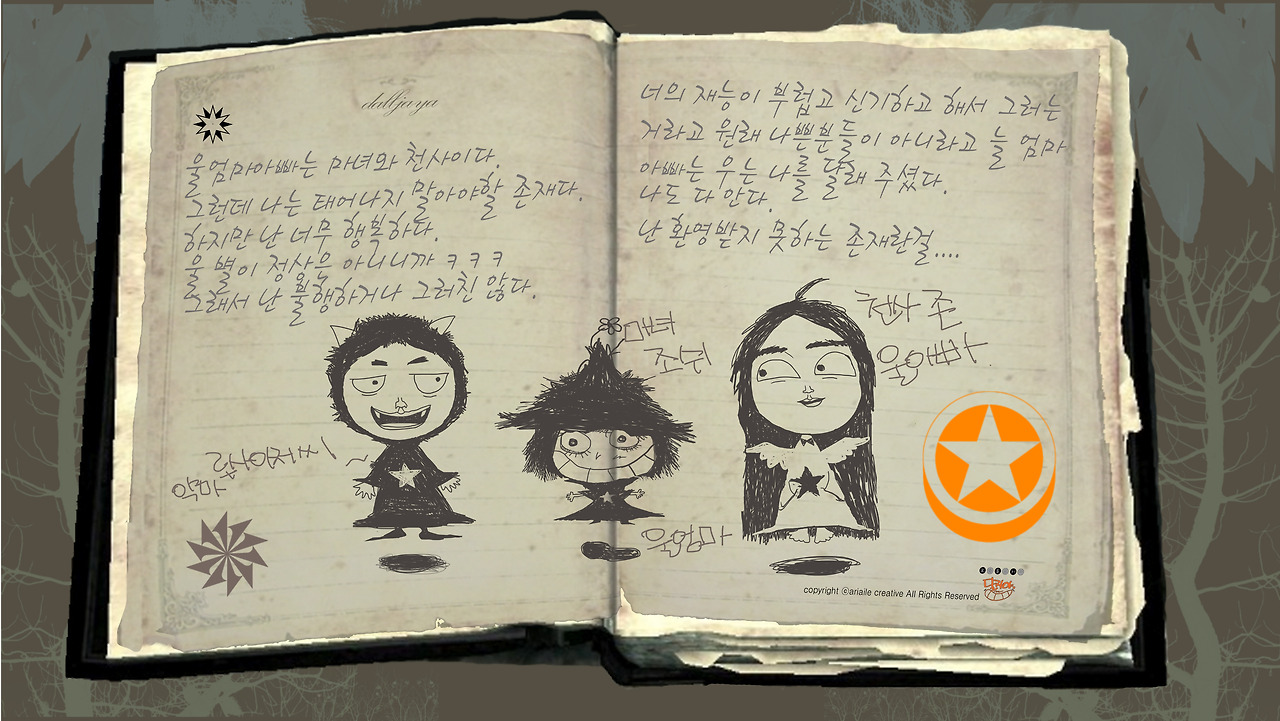 dalljaya
울엄마아빠는 마녀와 천사이다.
그런데 나는 태어나지 말아야할 존재다.
하지만 난 너무 행복하다.
울 별이 정상은 아니니까 ㅋㅋㅋ
그래서 난 불행하거나 그러친 않다.
너의 재능이 부럽고 신기하고 해서 그러는
거라고 원래 나쁜분들이 아니라고 늘 엄마
아빠는 우는 나를 달래 주셨다.
나도 다 안다.
난 환영받지 못하는 존재란걸....
마녀
악마
울엄마
울아빠
copyright ⓒariaile creative All Rights Reserved